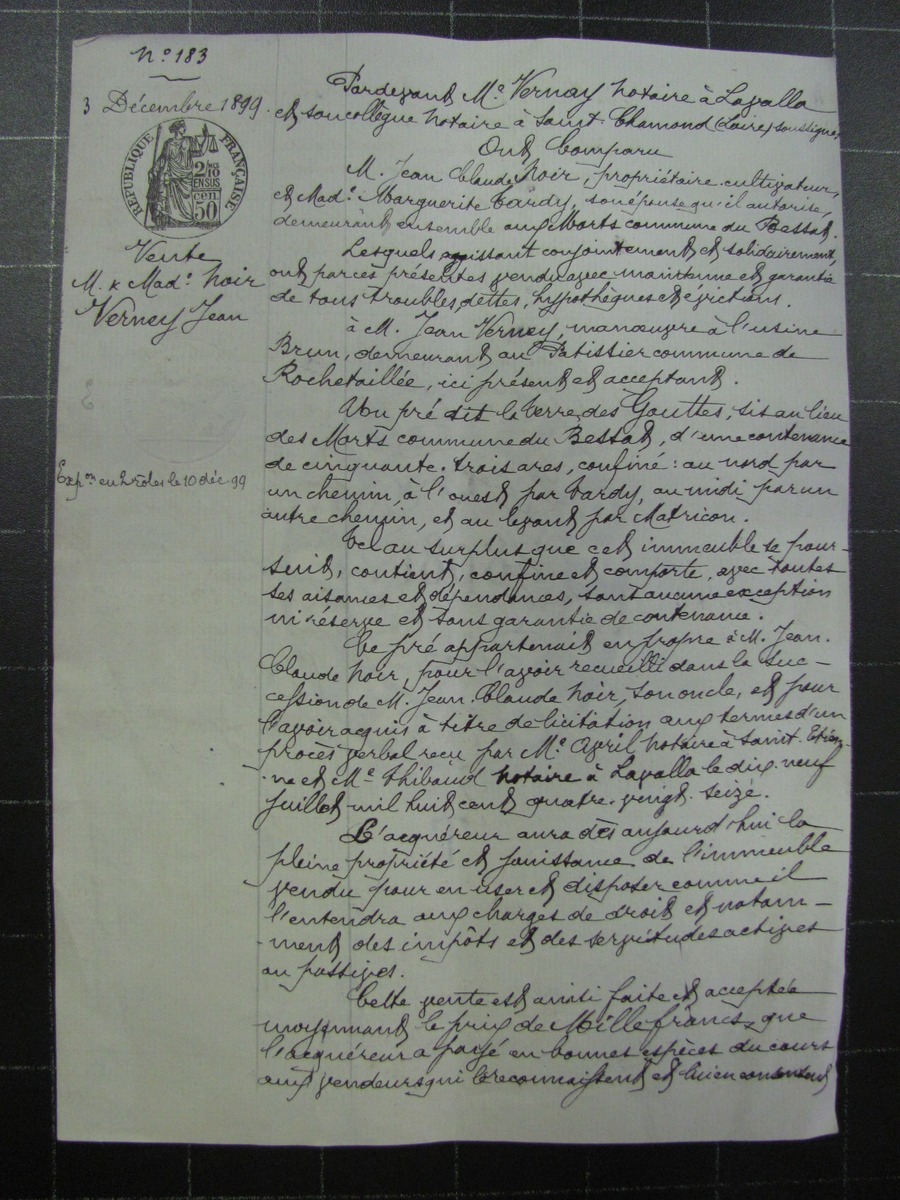 N° 183
3 Décembre 1899.
RÉPUBLIQUE FRANÇAISE
2/10 EN SUS
50 cen
Vente
M. & Mad.e Noir
Verney Jean
Exp.on en 2 rôles le 10 déc 99
Pardevant Me Vernay notaire à Lavalla
et son collègue notaire à Saint-Chamond (Loire) soussignés
Ont Comparu
M. Jean Claude Noir, propriétaire-cultivateur,
et Mad.e Marguerite Tardy, son épouse qu'il autorise,
demeurant ensemble aux Morts commune du Bessat,
Lesquels agissant conjointement et solidairement,
ont par ces présentes vendu avec maintenue et garantie
de tous troubles, dettes, hypothèques et évictions.
à M. Jean Verney, manœuvre à l'usine
Brun, demeurant au Patissier commune de
Rochetaillée, ici présent et acceptant.
Un pré dit la Terre des Gouttes, sis au lieu
des Morts commune du Bessat, d'une contenance
de cinquante-trois ares, confiné : au nord par
un chemin, à l'ouest par Tardy, au midi par un
autre chemin, et au levant par Matricon.
Tel au surplus que cet immeuble se pour-
suit, contient, confine et comporte, avec toutes
ses aisances et dépendances, sans aucune exception
ni réserve et sans garantie de contenance.
Ce pré appartenait en propre à M. Jean-
Claude Noir, pour l'avoir recueilli dans la suc-
cession de M. Jean-Claude Noir, son oncle, et pour
l'avoir acquis à titre de licitation aux termes d'un
procès verbal reçu par Me Avril notaire à Saint-Etien-
-ne et Me Thibaud notaire à Lavalla le dix-neuf
juillet mil huit cent quatre-vingt-seize.
L'acquéreur aura dès aujourd'hui la
pleine propriété et jouissance de l'immeuble
vendu pour en user et disposer comme il
l'entendra aux charges de droit et notam-
-ment des impôts et des servitudes actives
ou passives.
Cette vente est ainsi faite et acceptée
moyennant le prix de Mille francs, que
l'acquéreur a payé en bonnes espèces du cours
aux vendeurs qui le reconnaissent et lui en consentent